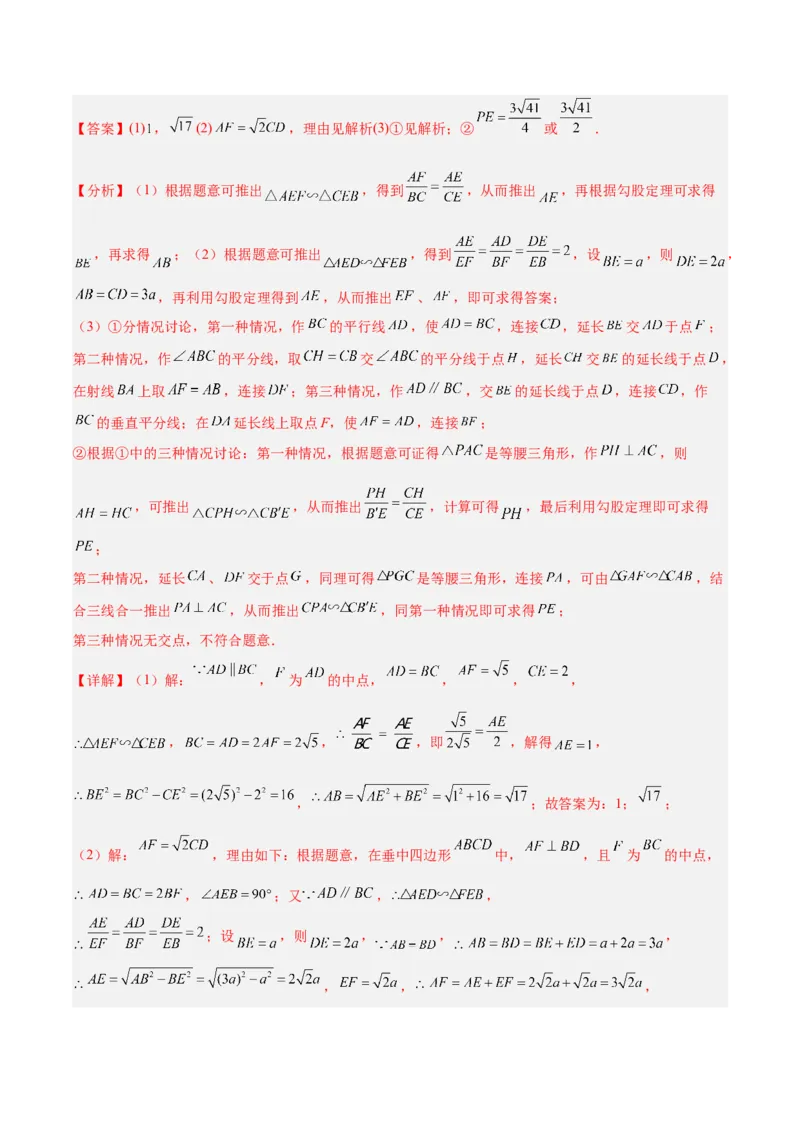 【答案】(1)1，√17 (2) AF = √2CD，理由见解析(3)①见解析；② PE = 3√41/4 或 3√41/2 ．
【分析】（1）根据题意可推出 △AEF∽△CEB，得到 AF/BC = AE/CE，从而推出 AE，再根据勾股定理可求得
BE，再求得 AB；（2）根据题意可推出 △AED∽△FEB，得到 AE/EF = AD/BF = DE/EB = 2，设 BE = a，则 DE = 2a，
AB = CD = 3a，再利用勾股定理得到 AE，从而推出 EF、AF，即可求得答案；
（3）①分情况讨论，第一种情况，作 BC 的平行线 AD，使 AD = BC，连接 CD，延长 BE 交 AD 于点 F；
第二种情况，作 ∠ABC 的平分线，取 CH = CB 交 ∠ABC 的平分线于点 H，延长 CH 交 BE 的延长线于点 D，
在射线 BA 上取 AF = AB，连接 DF；第三种情况，作 AD∥BC，交 BE 的延长线于点 D，连接 CD，作
BC 的垂直平分线；在 DA 延长线上取点F，使 AF = AD，连接 BF；
②根据①中的三种情况讨论：第一种情况，根据题意可证得 △PAC 是等腰三角形，作 PH ⊥ AC，则
AH = HC，可推出 △CPH∽△CB′E，从而推出 PH/B′E = CH/CE，计算可得 PH，最后利用勾股定理即可求得
PE；
第二种情况，延长 CA、DF 交于点 G，同理可得 △PGC 是等腰三角形，连接 PA，可由 △GAF∽△CAB，结
合三线合一推出 PA ⊥ AC，从而推出 CPA∽△CB′E，同第一种情况即可求得 PE；
第三种情况无交点，不符合题意．
【详解】（1）解：∵AD∥BC，F 为 AD 的中点，AD = BC，AF = √5，CE = 2，
∴△AEF∽△CEB，BC = AD = 2AF = 2√5，∴ AF/BC = AE/CE，即 √5/2√5 = AE/2，解得 AE = 1，
∴ BE² = BC² − CE² = (2√5)² − 2² = 16，∴ AB = √(AE² + BE²) = √(1² + 16) = √17；故答案为：1；√17；
（2）解：AF = √2CD，理由如下：根据题意，在垂中四边形 ABCD 中，AF ⊥ BD，且 F 为 BC 的中点，
∴ AD = BC = 2BF，∠AEB = 90°；又∵ AD∥BC，∴△AED∽△FEB，
∴ AE/EF = AD/BF = DE/EB = 2；设 BE = a，则 DE = 2a，∵ AB = BD，∴ AB = BD = BE + ED = a + 2a = 3a，
∴ AE = √(AB² − BE²) = √((3a)² − a²) = 2√2a，EF = √2a，∴ AF = AE + EF = 2√2a + √2a = 3√2a，